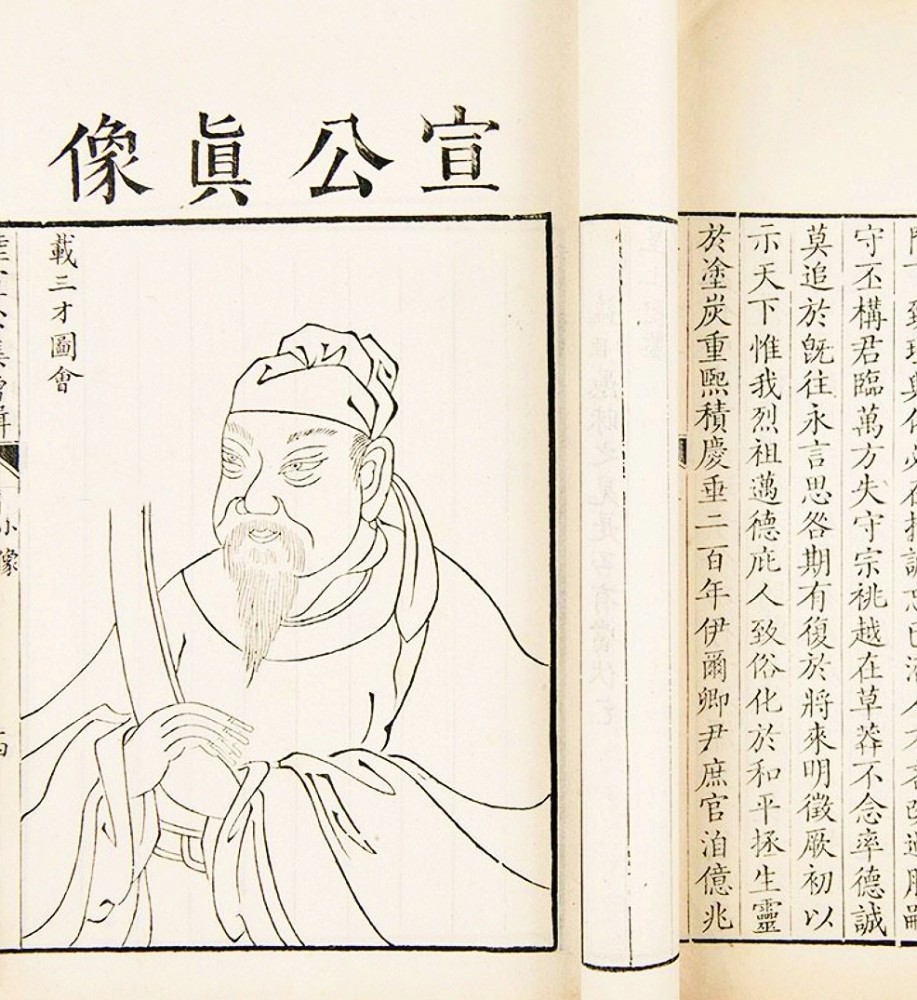 守丕構君臨萬方失守宗祧越在草莽不念率德誠
莫追於旣往永言思咎期有復於將來明徵厥初以
示天下惟我烈祖邁德庇人致俗化於和平拯生靈
於塗炭重熙積慶垂二百年伊爾卿尹庶官洎億兆
宣公眞像
載三才圖會
小像